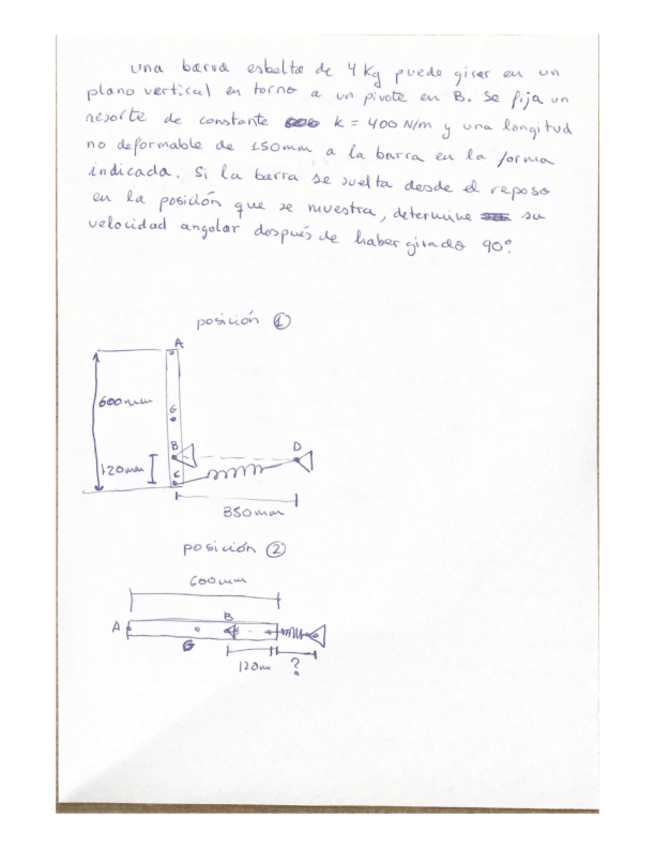 una barra esbelta de 4 Kg puede girar en un
plano vertical en torno a un pivote en B. Se fija un
resorte de constante k = 400 N/m y una longitud
no deformable de 150mm a la barra en la forma
indicada. Si la barra se suelta desde el reposo
en la posición que se muestra, determine su
velocidad angular después de haber girado 90°.
posición ①
A
600mm
G
B
D
120mm
C
850mm
posición ②
600mm
B
A
G
120m
?